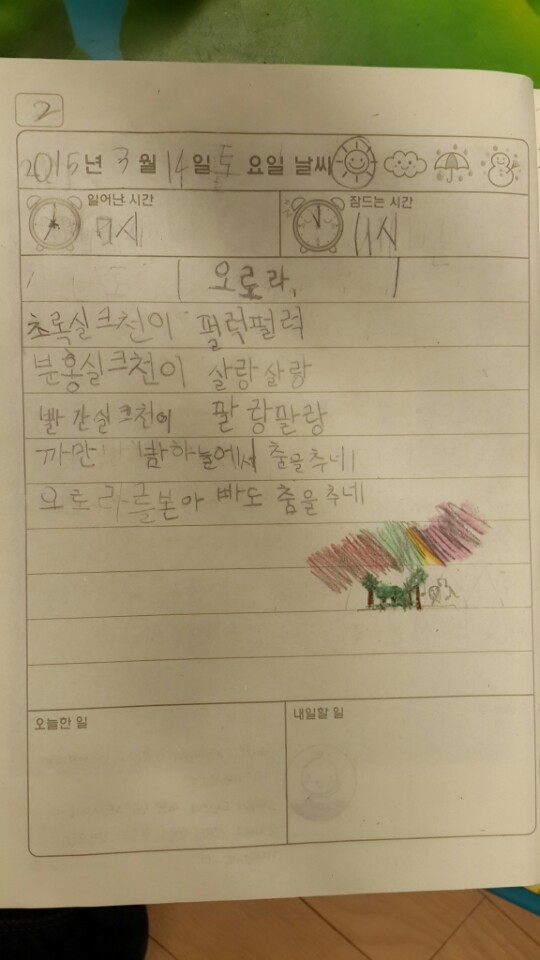 2
2015년 3월 14일 토요일 날씨
일어난 시간
잠드는 시간
7시
11시
오로라
초록실크천이 펄럭펄럭
분홍실크천이 살랑살랑
빨간실크천이 팔랑팔랑
까만 밤하늘에서 춤을추네
오로라를본아빠도 춤을추네
오늘한 일
내일할 일